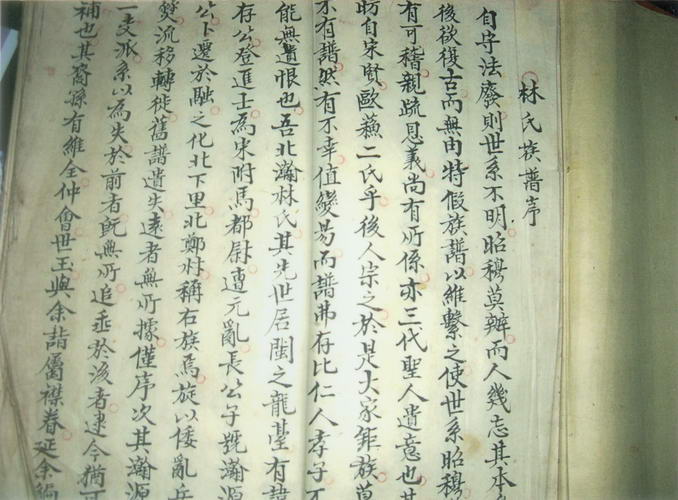 林氏族譜序
自守法廢則世系不明昭穆莫辨而人幾忘其本
後欲復古而無由特假族譜以維繫之使世系昭穆
有可稽親疏恩義尚有所係亦三代聖人遺意也
昉自宋賢歐蘓二氏乎後人宗之於是大家鉅族莫
不有譜然有不幸值變易而譜弗存比仁人孝子不
能無遺恨也吾北瀚林氏其先世居閩之龍臺有諱
存公登進士為宋附馬都尉遭元亂長公子號瀚源
公卜遷於融之化北下里北鄭村稱右族焉旋以倭亂兵
燹流移轉徙舊譜遺失遠者無所據僅序次其瀚源
一支派系以為失於前者旣無所追垂於後者逮今猶可
補也其裔孫有維全仲會世玉與余諧屬襟眷延余編